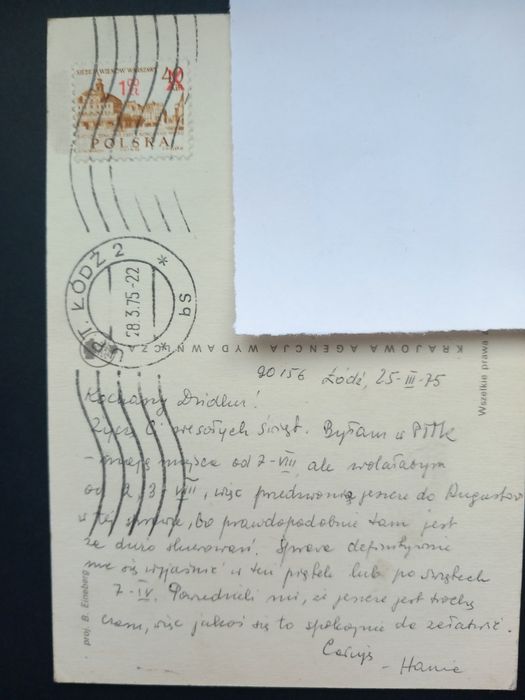 SIEDEM WIEKÓW WARSZAWY
40
1 00 ZŁ
POLSKA
UPT. ŁÓDŹ 2
28.3.75-22
sq
KRAJOWA AGENCJA WYDAWNICZA
Wszelkie prawa
proj. B. Eineberg
90156 Łódź, 25-III-75
Kochany Dzidku!
Życzę Ci wesołych świąt. Byłam w PTTK
- mają miejsca od 7-VIII, ale wolałabym
od 2, 3-VIII, więc przedzwonią jeszcze do Augustowa
w tej sprawie, bo prawdopodobnie tam jest
za dużo skierowań. Sprawa definitywnie
ma się wyjaśnić w ten piątek lub po świętach
7-IV. Powiedzieli mi, że jeszcze jest trochę
czasu, więc jakoś się to spokojnie da załatwić.
Całuję
- Hania